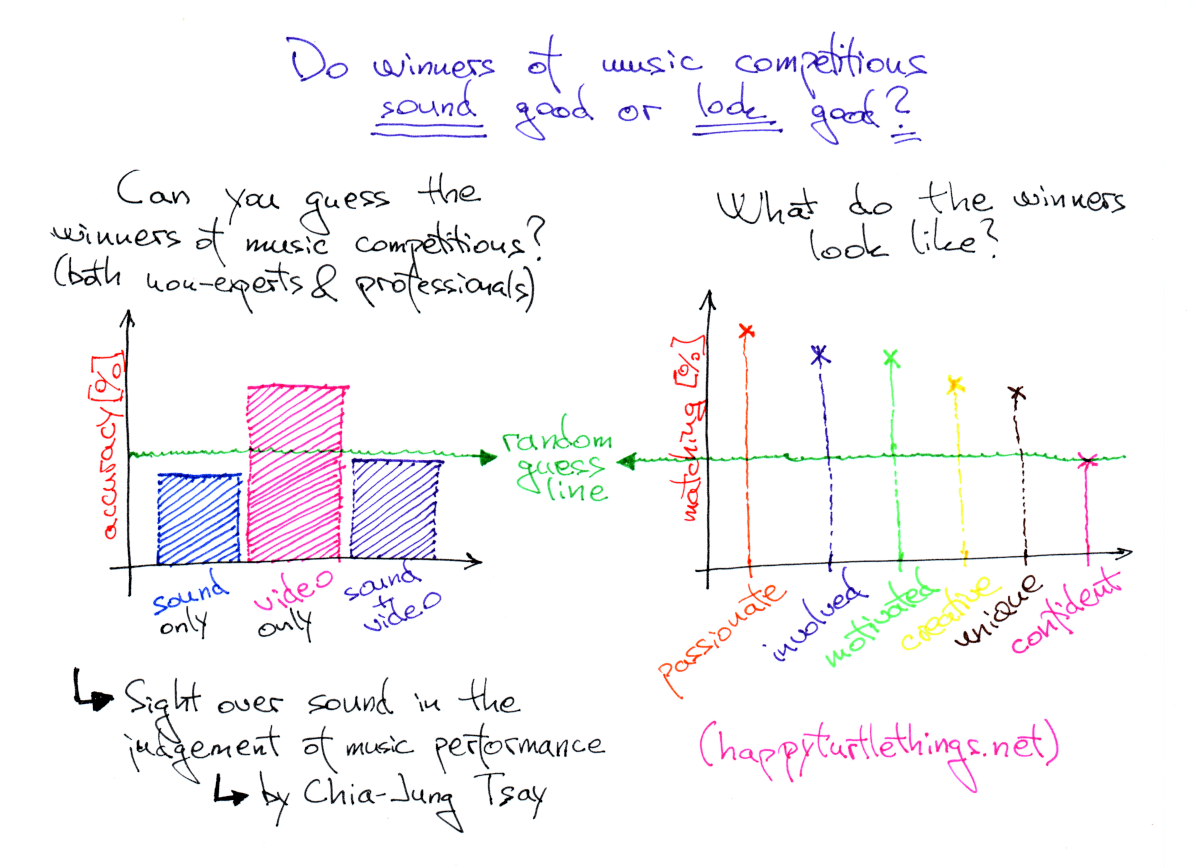 Do winners of music competitions
sound good or look good?
Can you guess the
winners of music competitions?
(both non-experts & professionals)
accuracy [%]
sound
only
video
only
sound
+
video
random
guess
line
What do the winners
look like?
matching [%]
passionate
involved
motivated
creative
unique
confident
Sight over sound in the
judgement of music performance
by Chia-Jung Tsay
(happyturtlethings.net)